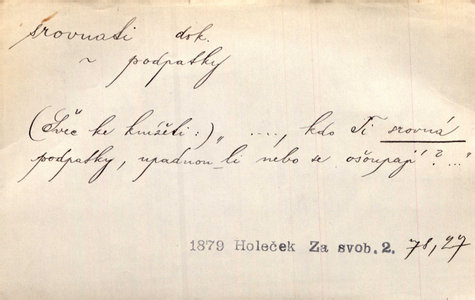 srovnati dok.
~ podpatky
(Švec ke knížeti:) „ ...., kdo Ti srovná
podpatky, upadnou_li nebo se ošoupají? ..."
1879 Holeček Za svob. 2. 78, 27